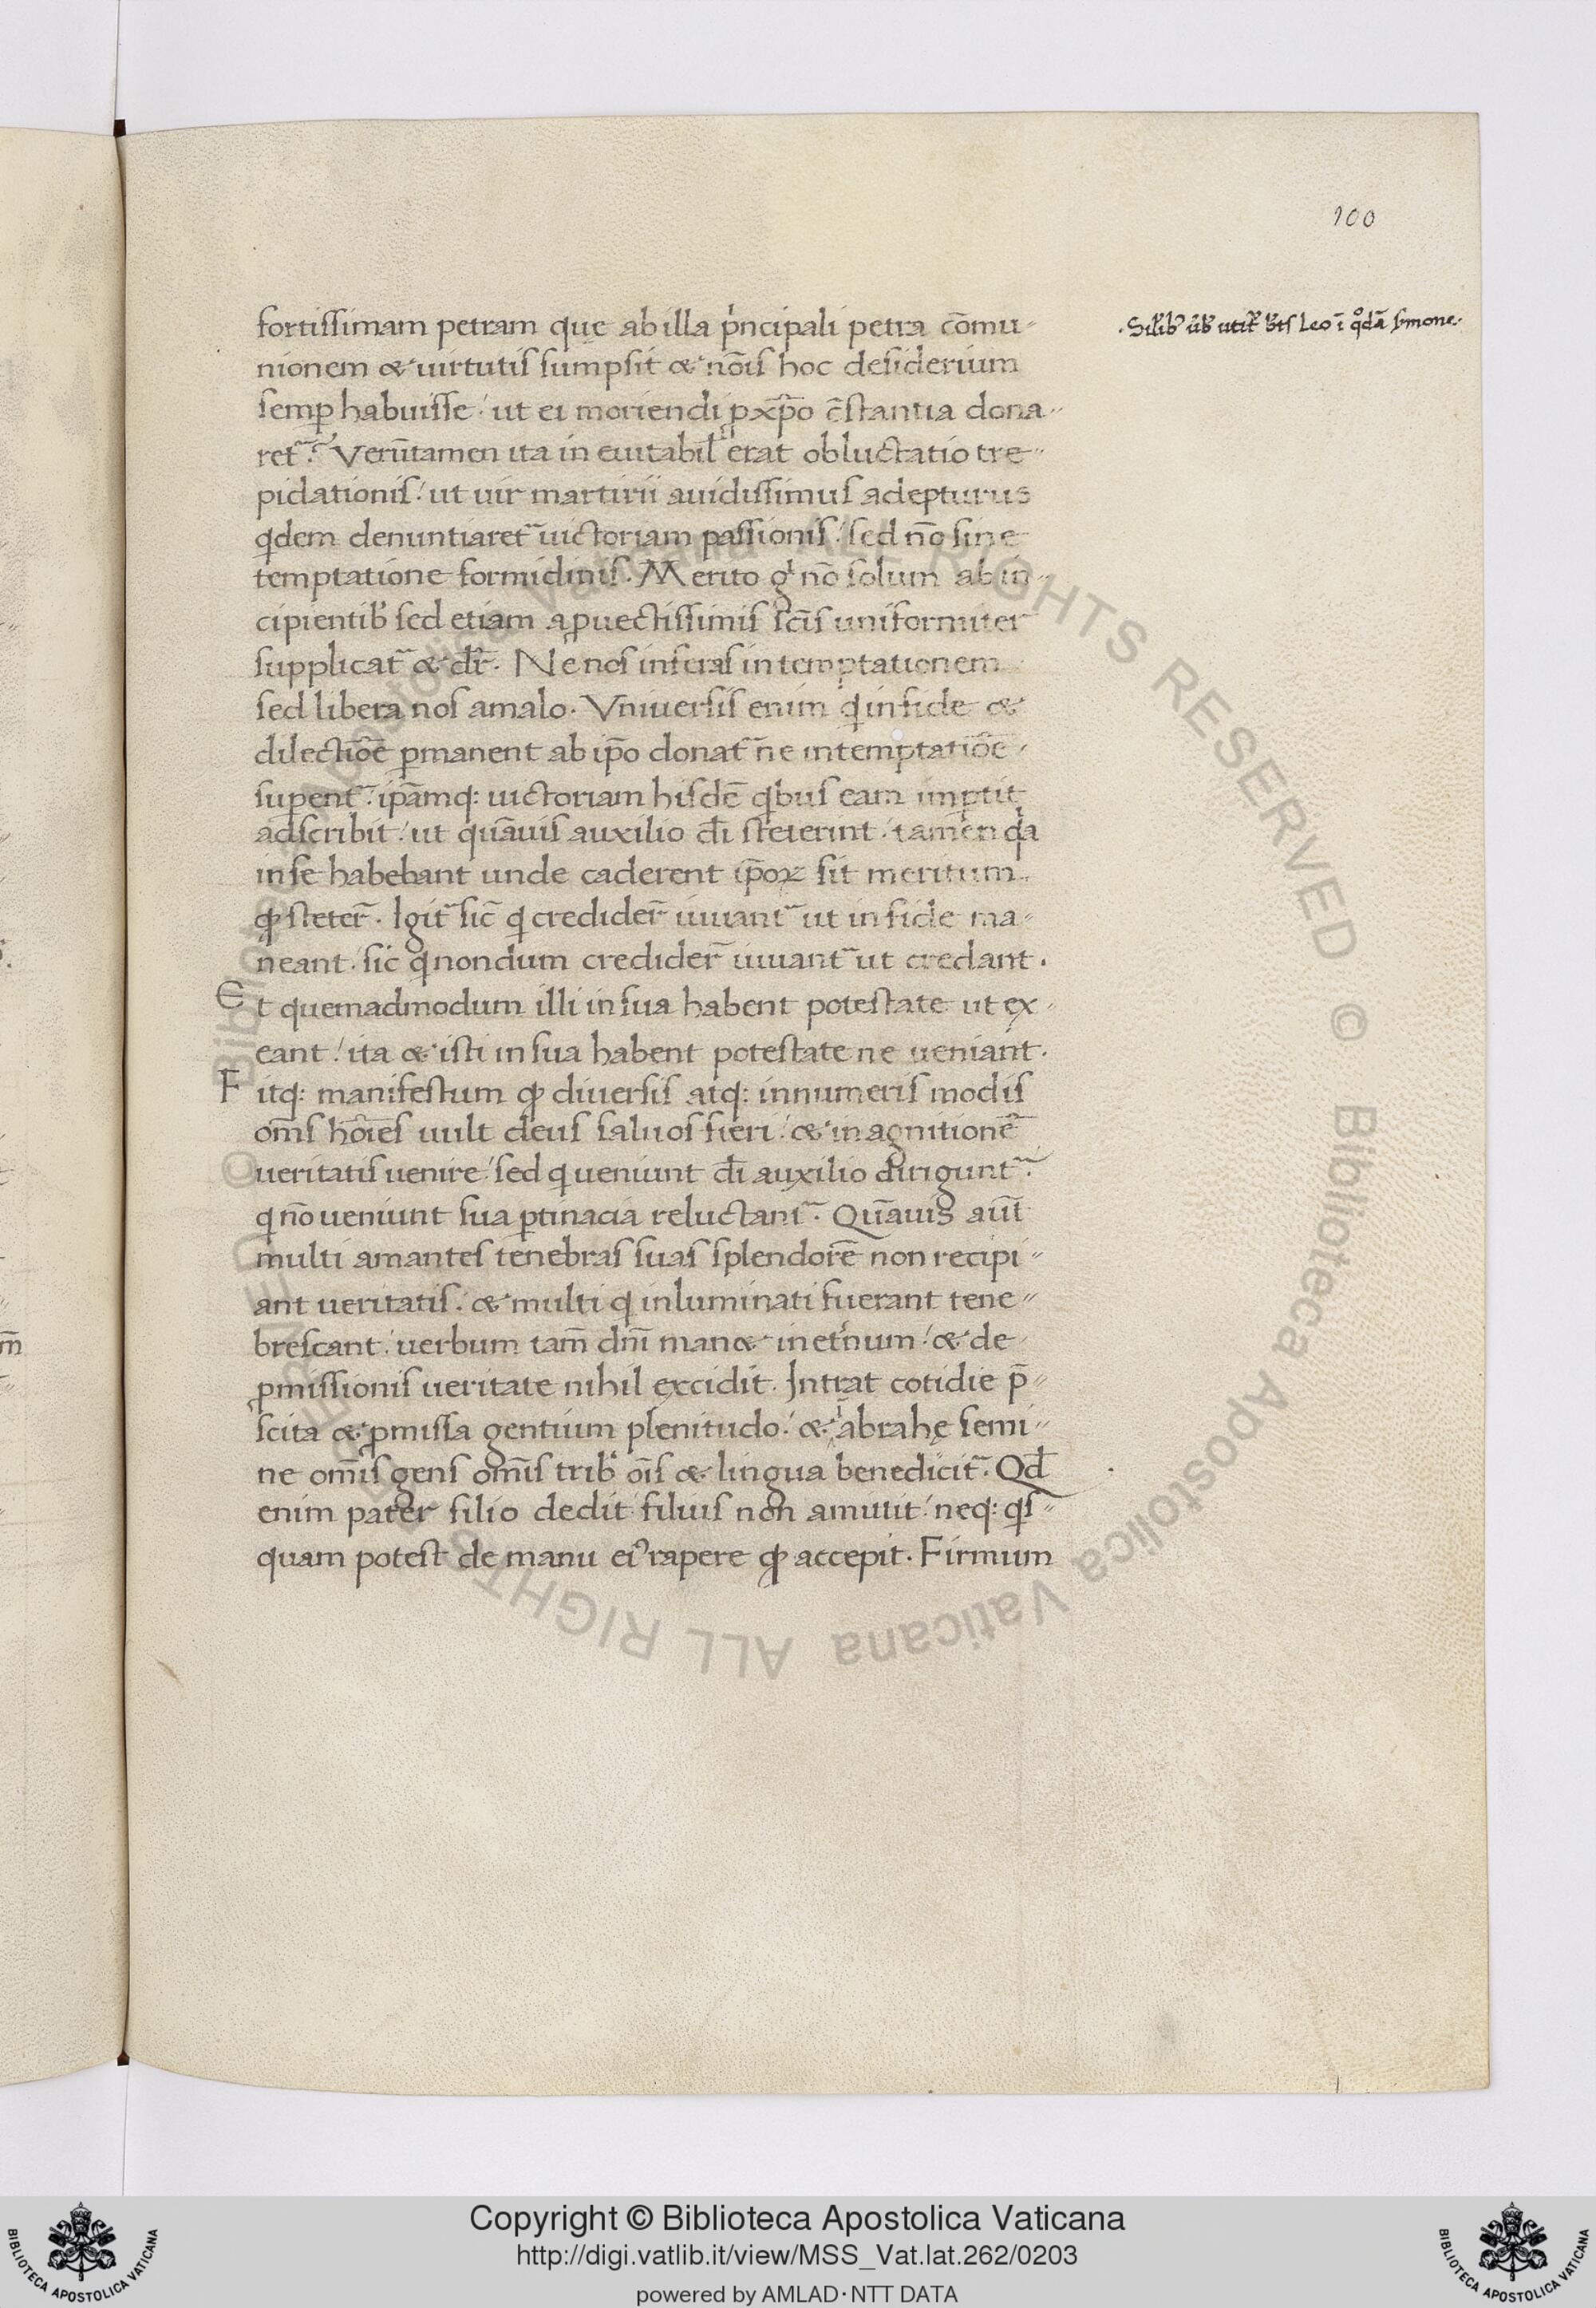 100
fortissimam petram quę ab illa pͥncipali petra cōmu-
·Silib᷒ ūb᷒ utit᷑ bt̄s Leo ī qͦdā s̄mone·
nionem & uirtutis sumpsit & nōis hoc desiderium
semꝑ habuisse / ut ei moriendi ꝓ xp̄o c̄stantia dona-
ret᷑. Verūtamen ita in euitabil̕ erat obluctatio tre-
pidationis / ut uir martirii auidissimus adepturus
qͥdem denuntiaret᷑ uictoriam passionis / sed nō sine
temptatione formidinis. Merito gͥ nō solum ab in-
cipientib᷒ sed etiam a ꝓuectissimis scīs uniformiter
supplicat᷑ & dr̄. Ne nos inferas in temptationem
sed libera nos a malo. Vniuersis enim qͥ in fide &
dilectiōe ꝑmanent ab ip̄o donat᷑ ne in temptatiōe
suꝑent᷑. ip̄amq: uictoriam hisdē qͥbus eam imꝑtit
adscribit / ut quāuis auxilio dī steterint / tamen qͥa
in se habebant unde caderent ip̄oꝝ sit meritum
ꝙ steter̄. Igit᷑ sic̄ qͥ credider̄ iuuant᷑ ut in fide ma-
neant. sic qͥ nondum credider̄ iuuant᷑ ut credant.
Et quemadmodum illi in sua habent potestate ut ex-
eant / ita & isti in sua habent potestate ne ueniant.
Fitq: manifestum ꝙ diuersis atq: innumeris modis
om̄s hoīes uult deus saluos fieri / & in agnitionē
ueritatis uenire / sed qͥ ueniunt dī auxilio dirigunt᷑.
qͥ nō ueniunt sua ꝑtinacia reluctant᷑. Quāuis aūt
multi amantes tenebras suas splendorē non recipi-
ant ueritatis. & multi qͥ inluminati fuerant tene-
brescant / uerbum tam̄ dn̄i man& in et̄num / & de
ꝓmissionis ueritate nihil excidit. Intrat cotidie p̄-
scita & ꝓmissa gentium plenitudo / & ī abrahę semi-
ne om̄is gens om̄is trib᷒ oīs & lingua benedicit᷑. Qd̄
enim pater filio dedit filius non amittit / neq: qͥs-
quam potest de manu ei᷒ rapere ꝙ accepit. Firmum
m̄
© Biblioteca Apostolica Vaticana ALL RIGHTS RESERVED © Biblioteca Apostolica Vaticana ALL RIGHTS RESERVED
Copyright © Biblioteca Apostolica Vaticana
http://digi.vatlib.it/view/MSS_Vat.lat.262/0203
powered by AMLAD·NTT DATA
BIBLIOTECA APOSTOLICA VATICANA
BIBLIOTECA APOSTOLICA VATICANA